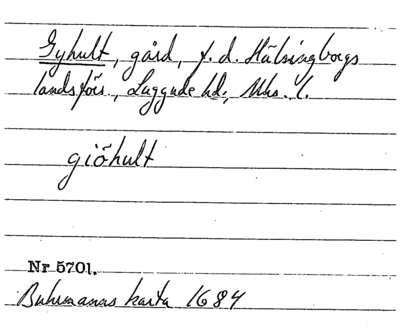 Gyhult, gård, f. d. Hälsingborgs
landsförs., Luggude hd., Mhs. l.
giöhult
Nr 5701.
Buhrmanns karta 1684